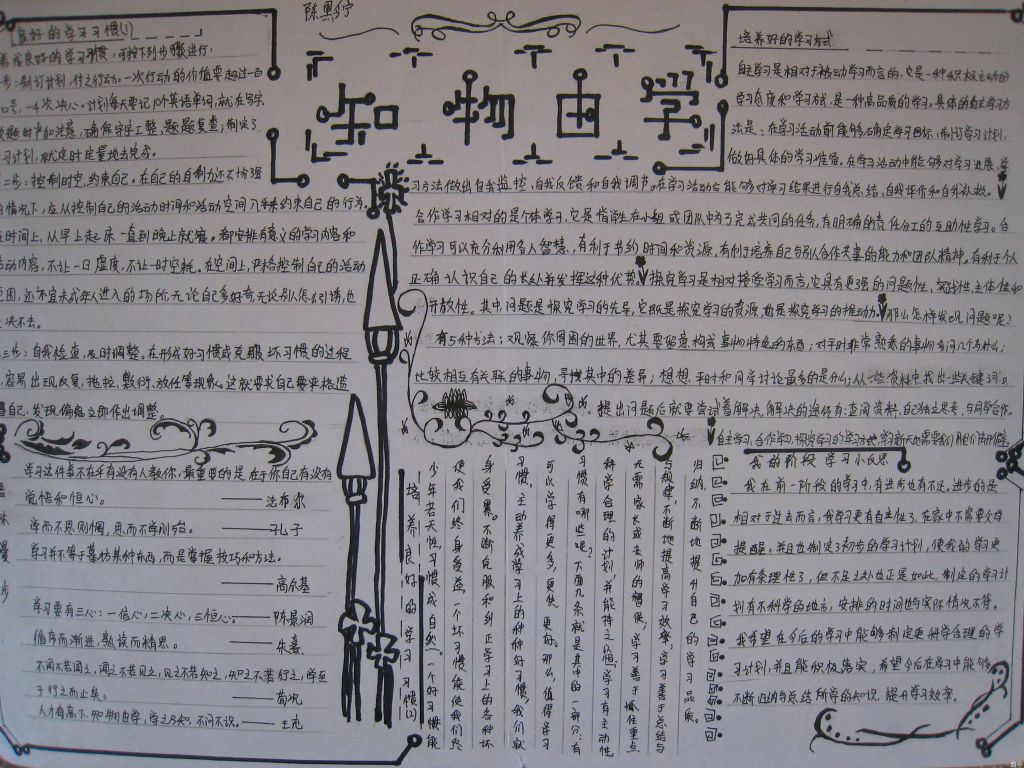 陈思宁
生物因学
良好的学习习惯(1)
养成良好的学习习惯，可按下列步骤进行：
步：制订计划，付之行动。一次行动的价值要超过一百
口号，一千次决心。计划每天要记10个英语单词，就在写字，
做题时严加注意，确保字字工整、题题复查；制定了
习计划，就定时定量地去完成。
二步：控制时空，约束自己。在自己的自制力还不怕强
情况下，应从控制自己的活动时间和活动空间入手来约束自己的行为。
在时间上，从早上起床一直到晚上就寝，都安排有意义的学习内容和
活动内容，不让一日虚度，不让一时空耗。在空间上，严格控制自己的活动
范围，还不宜未成年人进入的场所无论自己多好奇无论别人怎么引诱，也
决不去。
三步：自我检查，及时调整。在形成好习惯或克服坏习惯的过程
容易出现反复、拖拉、敷衍、放任等现象。这就要求自己要严格监
督自己，发现偏危立即作出调整。
学习这件事不在乎有没有人教你，最重要的是在于你自己有没有
觉悟和恒心。
——法布尔
学而不思则惘，思而不学则殆。——孔子
学习并不等于摹仿某种东西，而是掌握技巧和方法。
——高尔基
学习要有三心：一信心，二决心，三恒心。——陈景润
循序而渐进，熟读而精思。——朱熹
不闻不若闻之，闻之不若见之，见之不若知之，知之不若行之，学至
于行之而止矣。——荀况
人才有高下，知物由学，学之乃知，不问不识。——王充
培养好的学习方式
自主学习是相对于被动学习而言的，它是一种积极主动的
学习态度和学习方式，是一种高品质的学习。具体的自主学习方
法是：在学习活动前能够确定学习目标、制订学习计划，
做好具体的学习准备。在学习活动中能够对学习进展、学
习方法做出自我监控、自我反馈和自我调节。在学习活动后能够对学习结果进行自我总结、自我评价和自我补救。
合作学习相对的是个体学习，它是指学生在小组或团队中为了完成共同的任务，有明确的责任分工的互助性学习。合
作学习可以充分利用各人智慧，有利于节约时间和资源，有利于培养自己与别人合作共事的能力和团队精神。有利于个人
正确认识自己的长处并发挥这种优势。探究学习是相对接受学习而言，它具有更强的问题性、实践性、主体性和
开放性。其中，问题是探究学习的先导，它既是探究学习的资源，也是探究学习的推动力。那么怎样发现问题呢？
有5种方法：观察你周围的世界，尤其要留意构成事物特色的东西；对平时非常熟悉的事物多问几个为什么；
比较相互有关联的事物，寻找其中的差异；想想，平时和同学讨论最多的是什么；从一些资料中找出一些关键词。
提出问题后就要尝试着解决，解决的途径有：查阅资料，自己独立思考，与同学合作。
自主学习、合作学习、探究学习的学习方式
培养良好的学习习惯(2)
少年若天性，习惯成自然。一个好习惯能
使我们终身受益，一个坏习惯能使我们终
身受累。不断克服和纠正学习上的各种坏
习惯，主动养成学习上的种种好习惯，我们就
可以学得更多、更快、更好。那么，值得学习
习惯有哪些呢？下面几条就是其中的一部分：有
科学合理的计划，并能持之以恒；学习有主动性，
无需家长或老师的督促；学习善于抓住重点
与规律，不断地提高学习效率；学习善于总结与
归纳，不断地提升自己的学习品质。
我的阶段学习小反思
我在前一阶段的学习中，有进步也有不足。进步的是
相对于过去而言，我学习更有自主性了，在家中不需要父母
提醒，并且也制定了初步的学习计划，使我的学习更
加有条理性了，但不足之处也正是如此，制定的学习计
划有不科学的地方，安排的时间也与实际情况不符。
我希望在今后的学习中能够制定更科学合理的学
习计划，并且能积极落实，希望今后在学习中能够
不断归纳与总结所学的知识，提升学习效率。